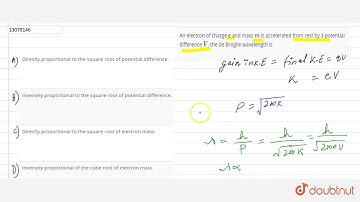 13079146
An electron of charge e and mass m is accelerated from rest by a potential
difference V. the de Broglie wavelength is
A) Directly proportional to the square root of potential difference.
B) Inversely proportional to the square root of potential difference.
C) Directly proportional to the square root of electron mass
D) Inversely proportional of the cube root of electron mass
gain in K.E = final K.E = eV
K = eV
P = √2mK
λ = h/P = h/√2mK = h/√2meV
λ∝
doubtnut